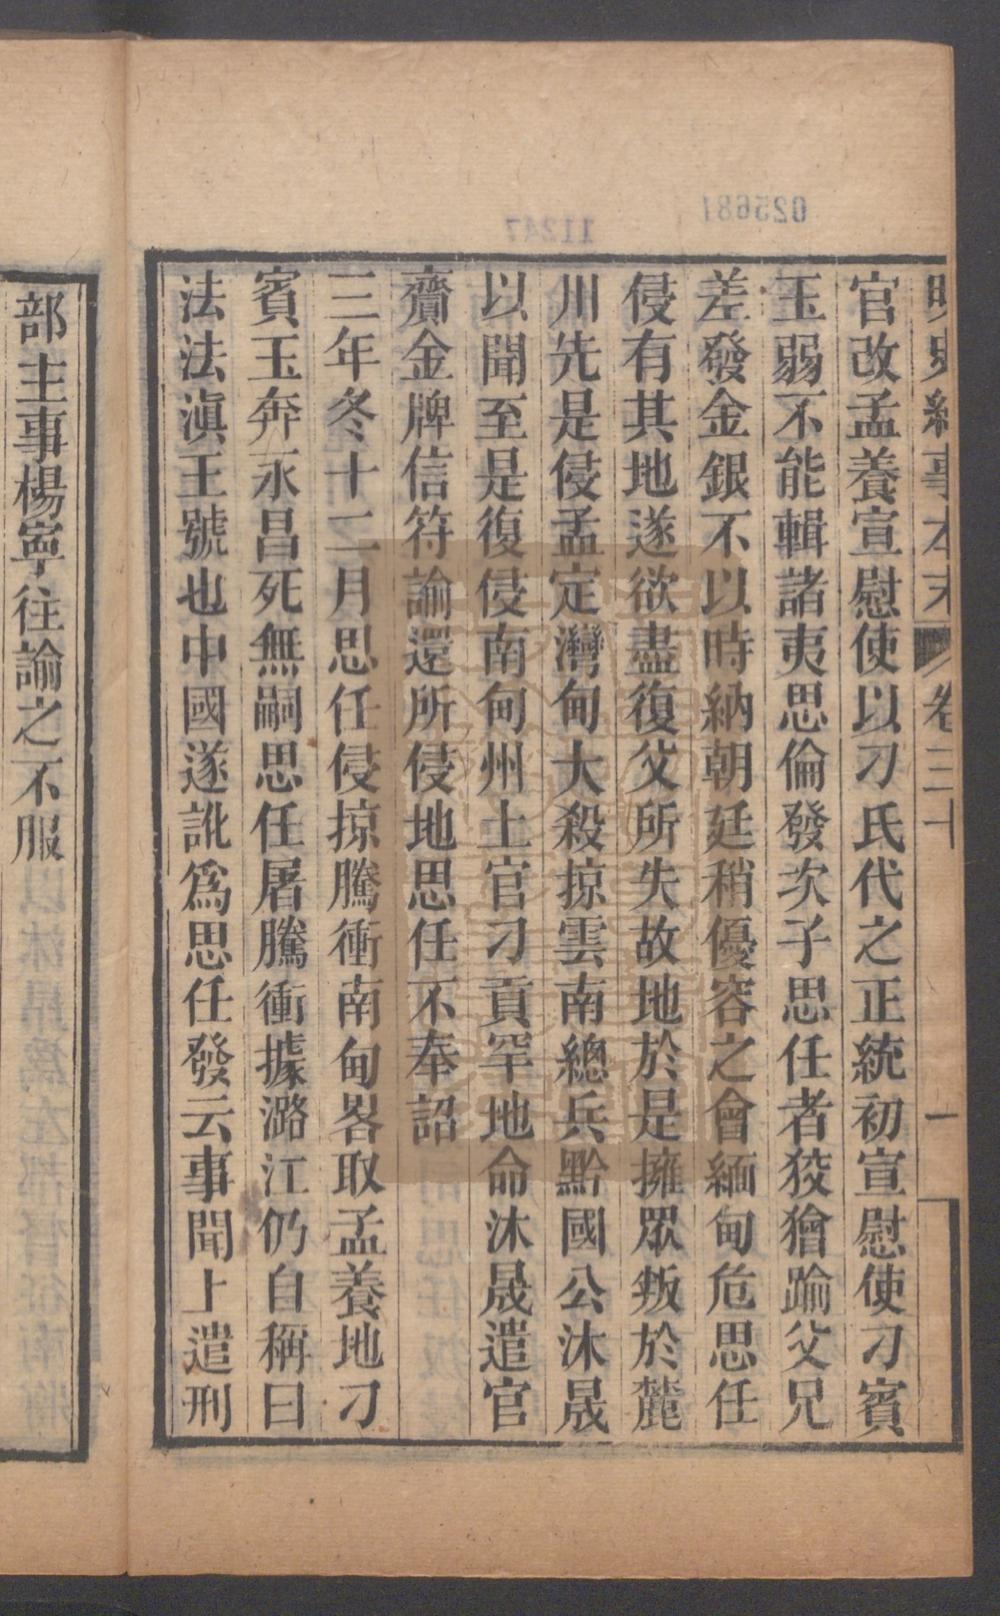 明史紀事本末 卷三十 一
官改孟養宣慰使以刁氏代之正統初宣慰使刁賓
玉弱不能輯諸夷思倫發次子思任者狡獪踰父兄
差發金銀不以時納朝廷稍優容之會緬甸危思任
侵有其地遂欲盡復父所失故地於是擁眾叛於麓
川先是侵孟定灣甸大殺掠雲南總兵黔國公沐晟
以聞至是復侵南甸州土官刁貢罕地命沐晟遣官
齎金牌信符諭還所侵地思任不奉詔
三年冬十二月思任侵掠騰衝南甸畧取孟養地刁
賓玉奔永昌死無嗣思任屠騰衝據潞江仍自稱曰
法法滇王號也中國遂訛為思任發云事聞上遣刑
部主事楊寧往諭之不服
025681
11247